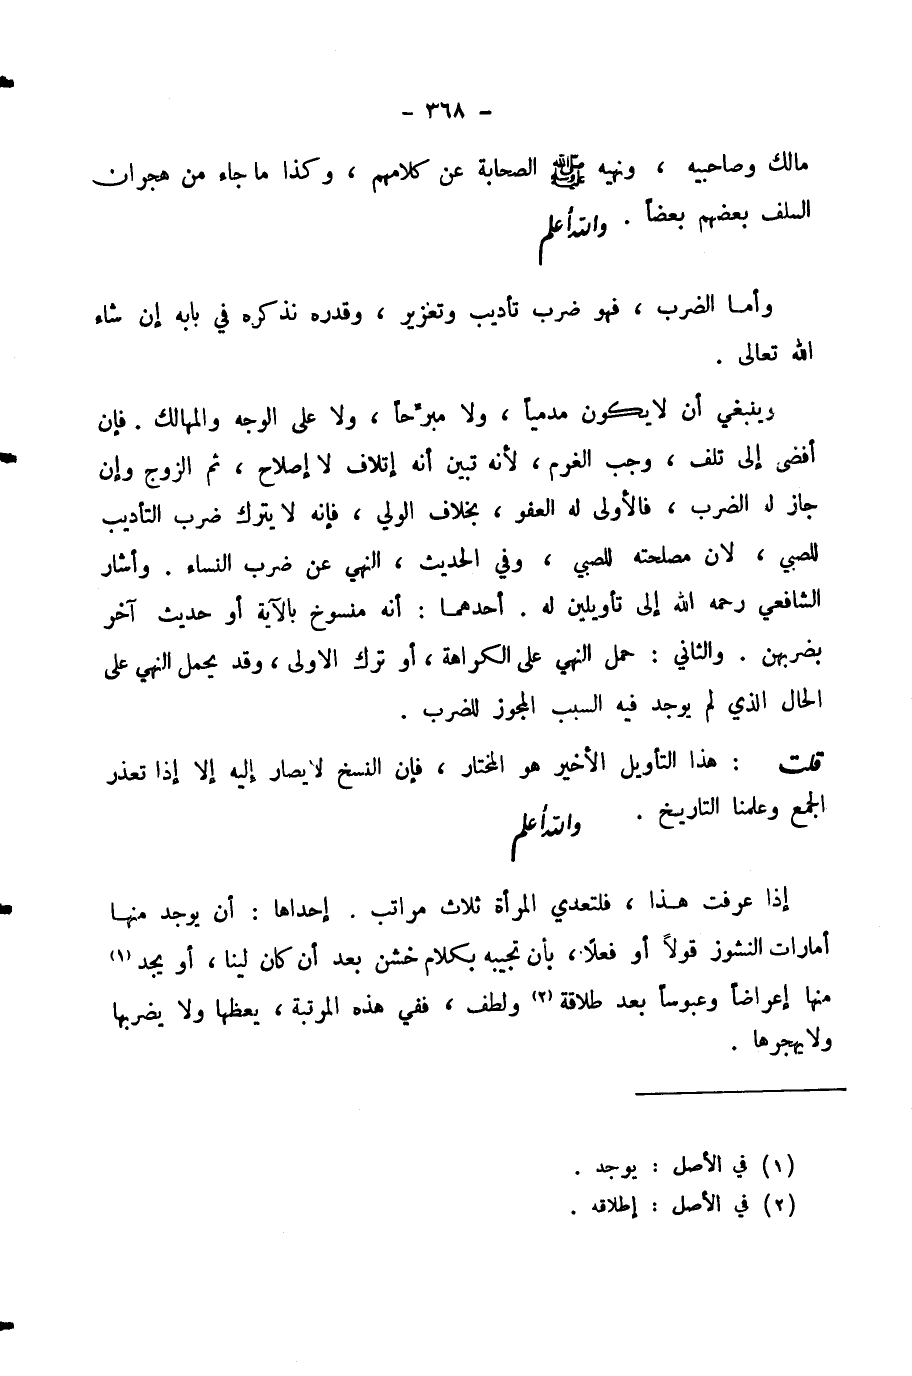 - ٣٦٨ -
مالك وصاحبيه ، ونهيه ﷺ الصحابة عن كلامهم ، وكذا ما جاء من هجران
السلف بعضهم بعضاً . والله أعلم
وأما الضرب ، فهو ضرب تأديب وتعزير ، وقدره نذكره في بابه إن شاء
الله تعالى .
وينبغي أن لا يكون مدمياً ، ولا مبرّحاً ، ولا على الوجه والمهالك . فإن
أفضى إلى تلف ، وجب الغرم ، لأنه تبين أنه إتلاف لا إصلاح ، ثم الزوج وإن
جاز له الضرب ، فالأولى له العفو ، بخلاف الولي ، فإنه لا يترك ضرب التأديب
للصبي ، لان مصلحته للصبي ، وفي الحديث ، النهي عن ضرب النساء . وأشار
الشافعي رحمه الله إلى تأويلين له . أحدهما : أنه منسوخ بالآية أو حديث آخر
بضربهن . والثاني : حمل النهي على الكراهة ، أو ترك الاولى ، وقد يحمل النهي على
الحال الذي لم يوجد فيه السبب المجوز للضرب .
قلت : هذا التأويل الأخير هو المختار ، فإن النسخ لا يصار إليه إلا إذا تعذر
الجمع وعلمنا التاريخ . والله أعلم
إذا عرفت هذا ، فلتعدي المرأة ثلاث مراتب . إحداها : أن يوجد منها
أمارات النشوز قولاً أو فعلاً ، بأن تجيبه بكلام خشن بعد أن كان لينا ، أو يجد (١)
منها إعراضاً وعبوساً بعد طلاقة (٢) ولطف ، ففي هذه المرتبة ، يعظها ولا يضربها
ولا يهجرها .
(١) في الأصل : يوجد .
(٢) في الأصل : إطلاقه .